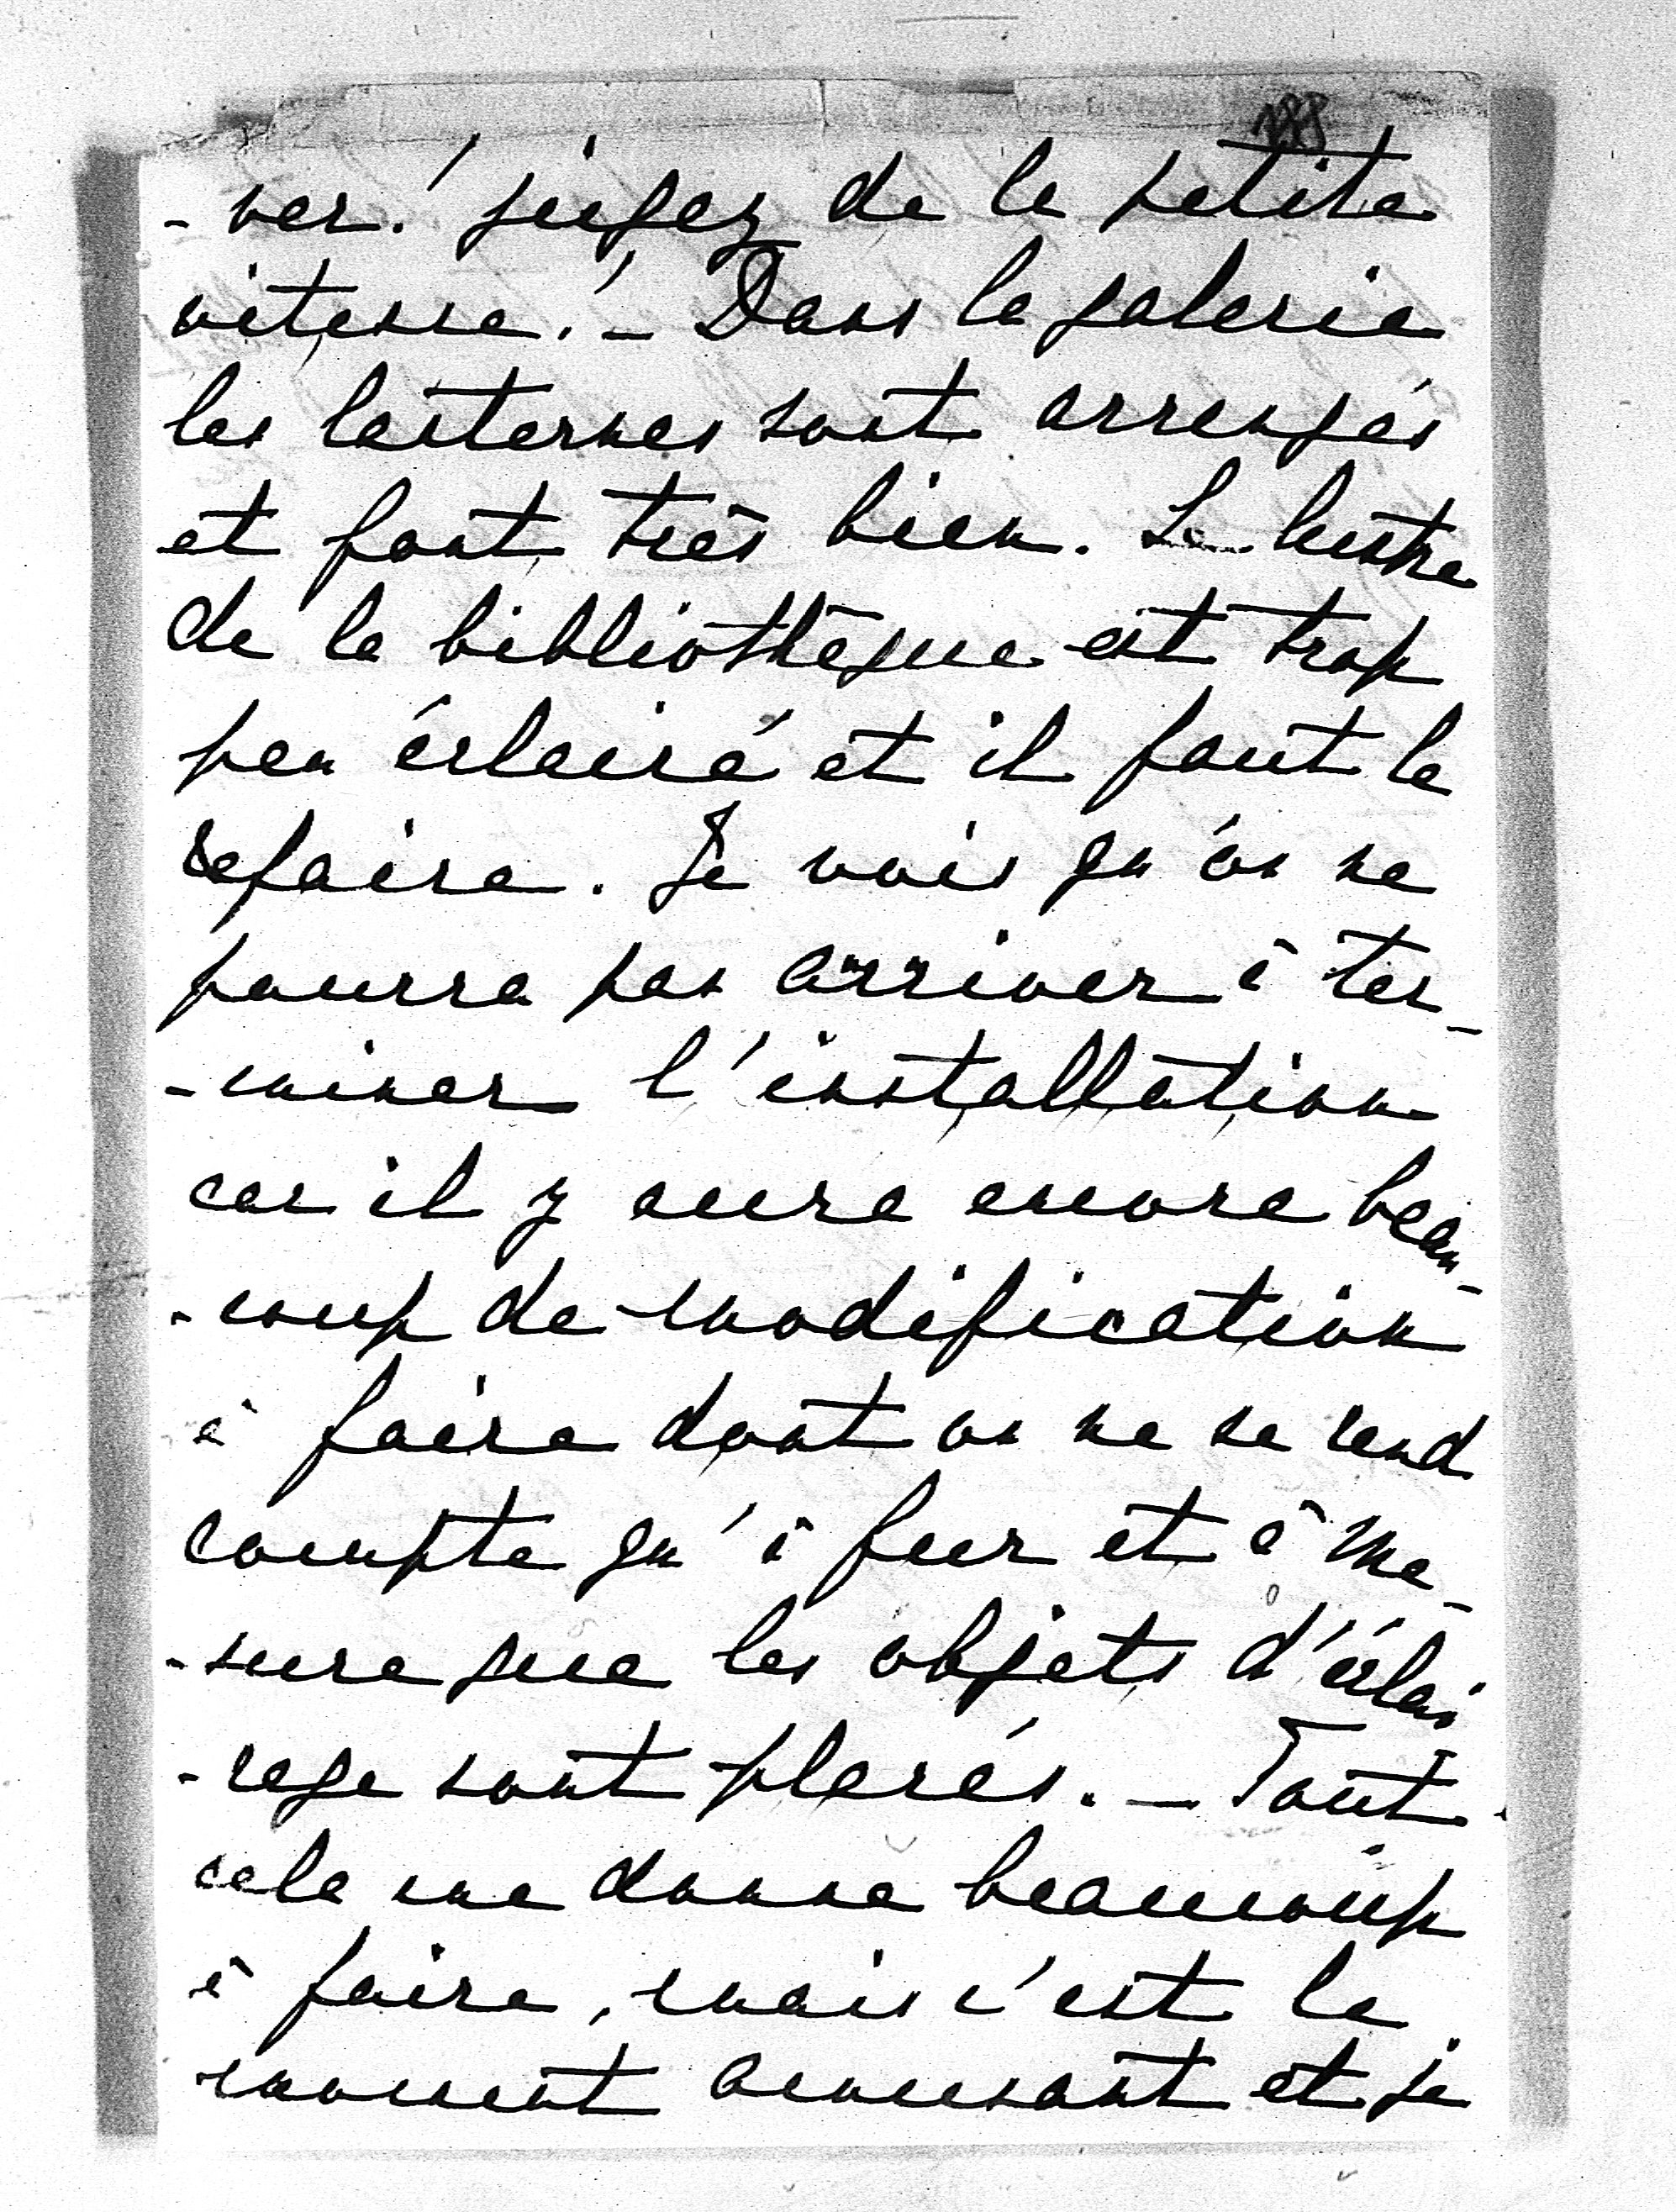 -ver! jugez de la petite
vitesse! _ Dans la galerie
les lanternes sont arrangés
et font très bien. Le lustre
de la bibliothèque est trop
peu éclairé et il faut le
refaire. Je vois qu'on ne
pourra pas arriver à ter_
-miner l'installation
car il y aura encore beau-
-coup de modification
à faire dont on ne se rend
compte qu'à fur et à me-
-sure que les objets d'éclai
-rage sont placés. _ Tout
cela me donne beaucoup
à faire, mais c'est le
moment amusant et je